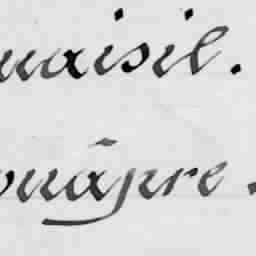 uaisil.
ouâpre.